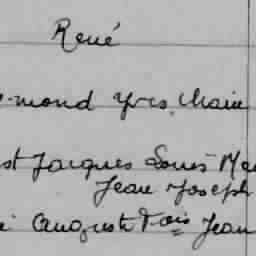 René
mond Yves Marie
st Jacques Louis Ma
Jean Joseph
Auguste Fois Jean